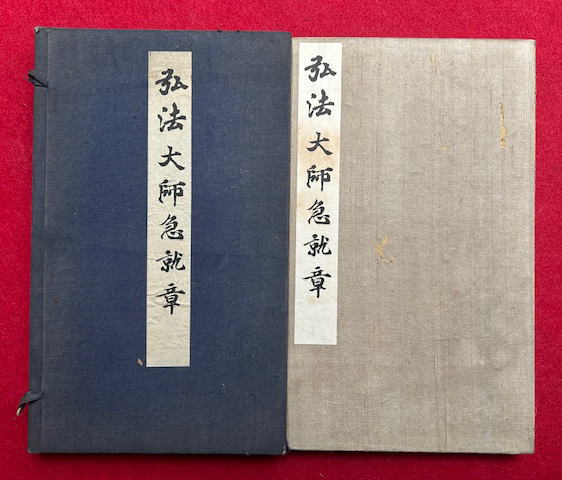 弘法大師急就章
弘法大師急就章